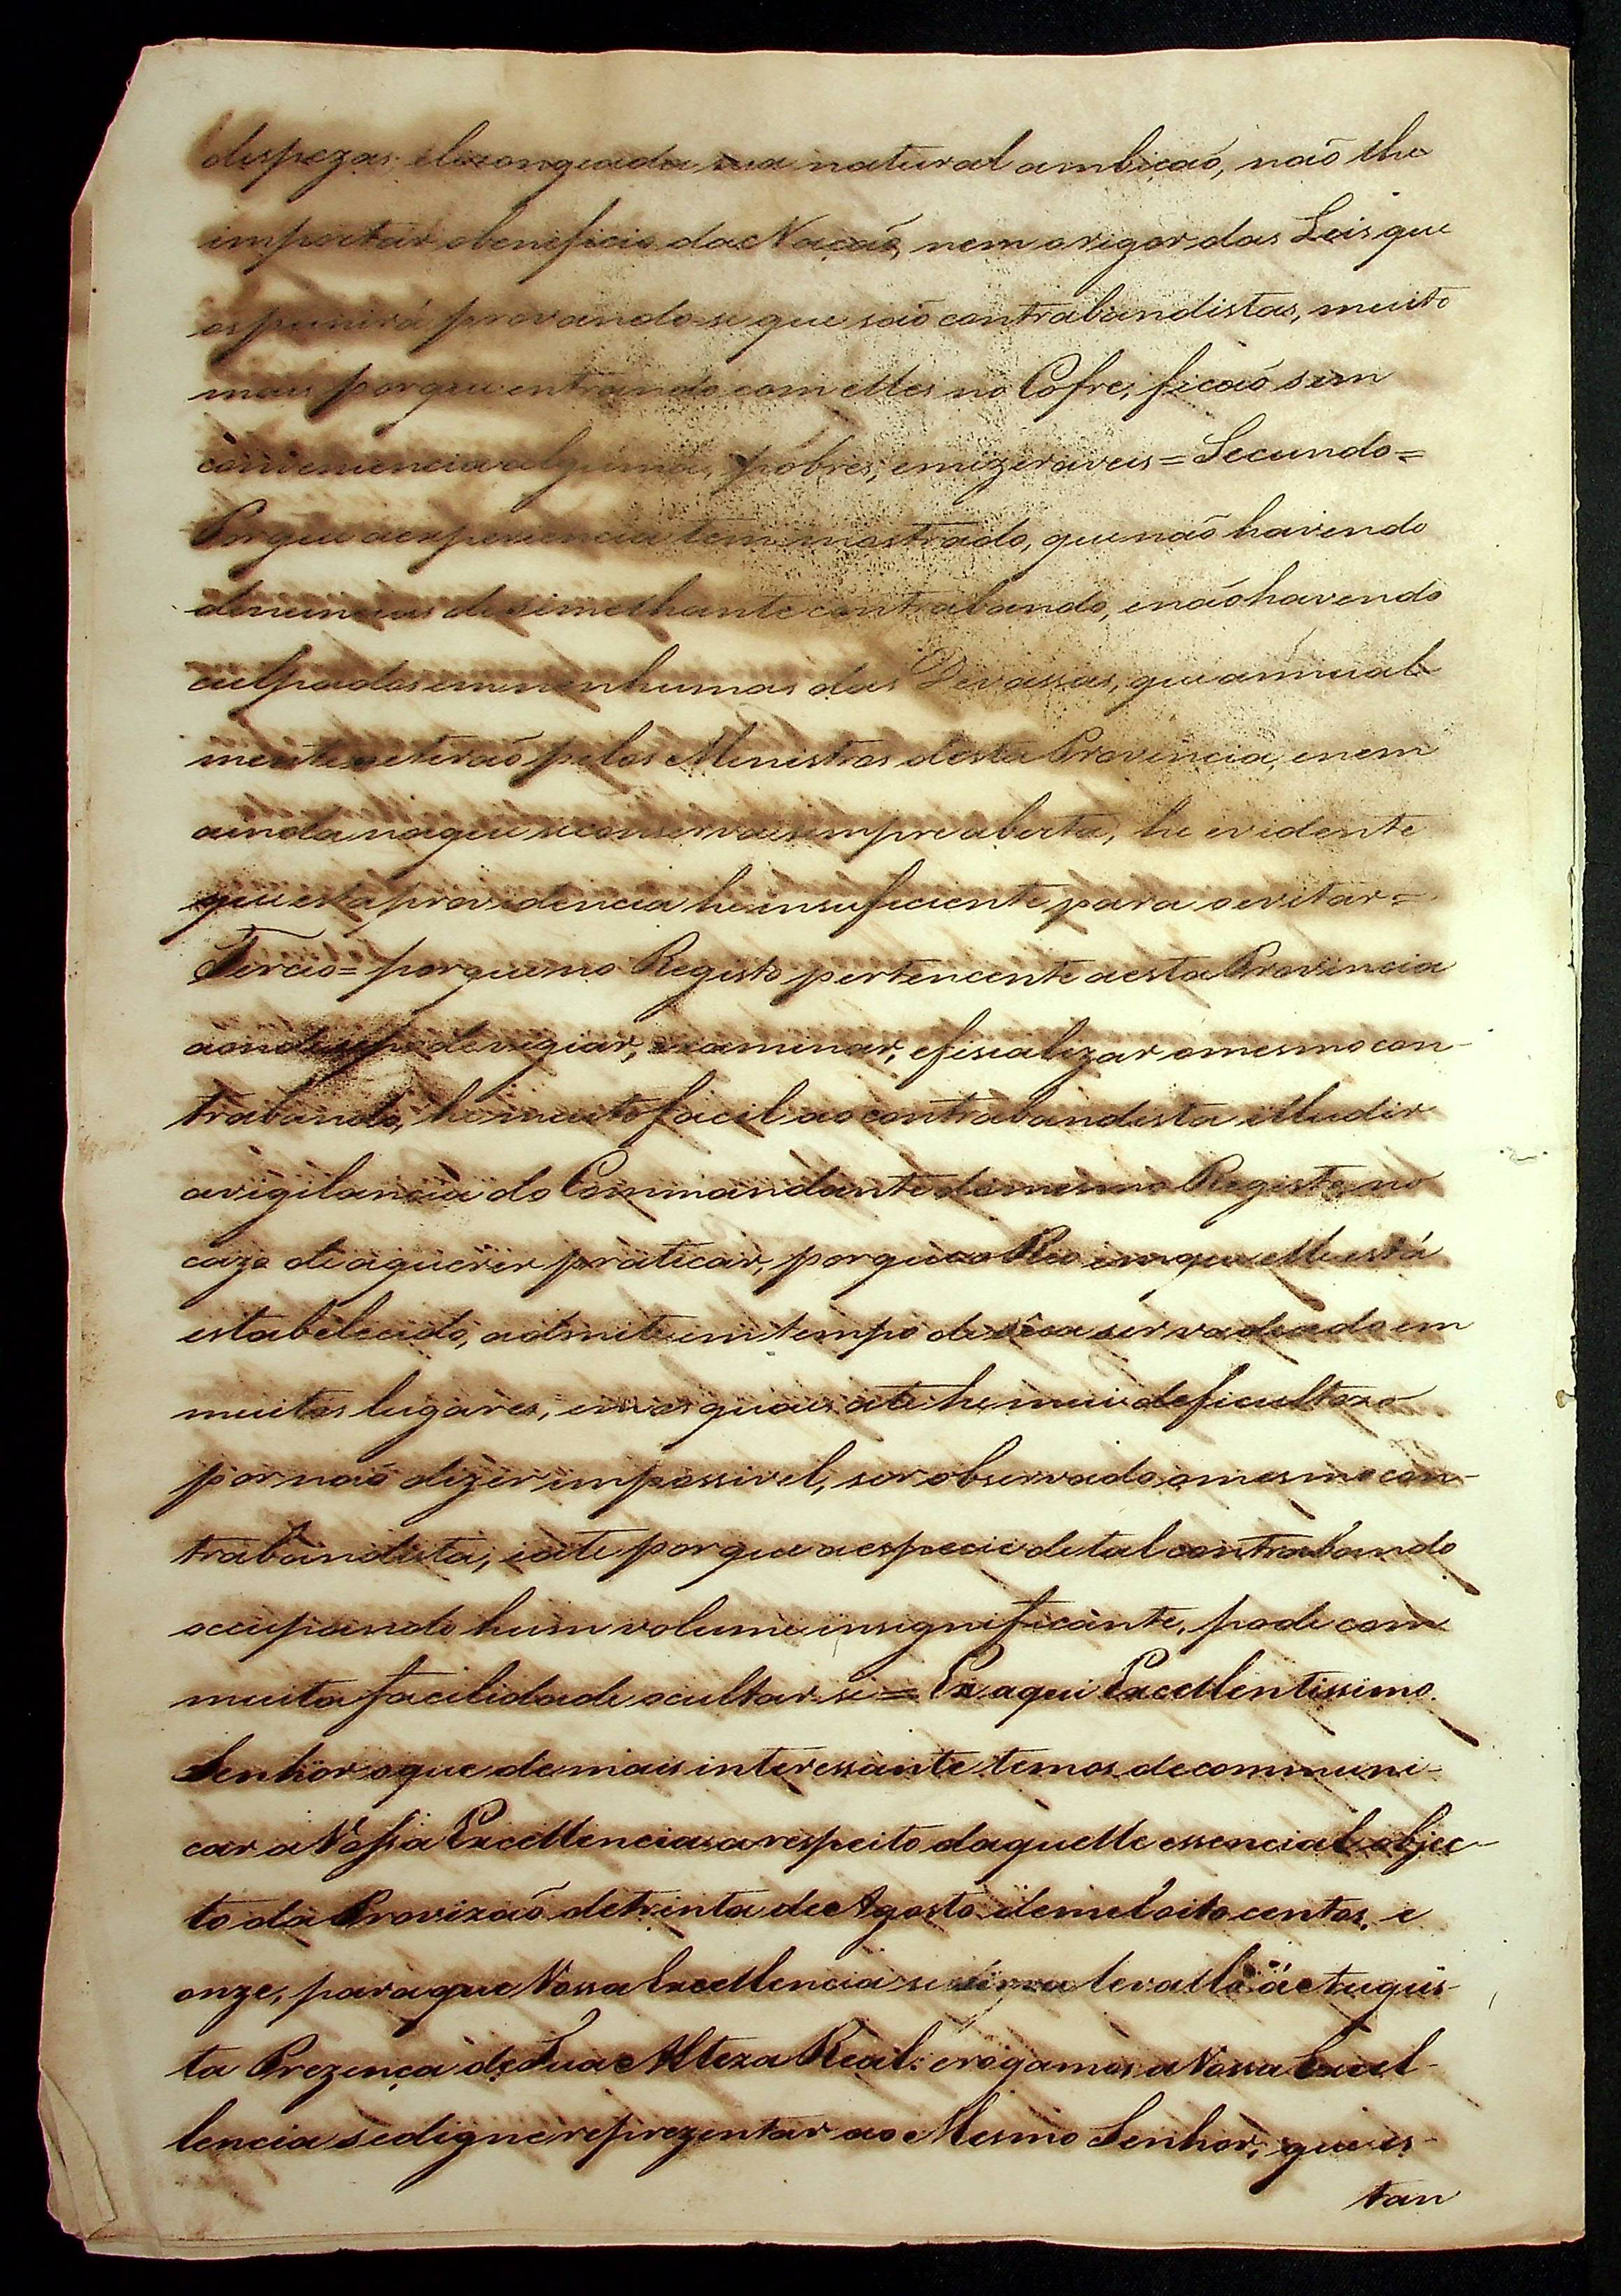 despezas, elizongeada sua natural ambicaõ, naõ lhe
importar obeneficio da Naçaõ, nem origor das Leis que
os punirá provando-se que saõ contrabandistas, muito
mais porque entrando com elles no Cofre, ficaõ sem
conveniencia alguma, pobres, emizeraveis = Secundo =
Porque aexperiencia tem mostrado, que naõ havendo
denuncias de simelhante contrabando, enaõ havendo
culpados em nenhumas das Devassas, que annual
mente setiraõ pelos Ministros desta Provincia, enem
ainda naque seconserva sempre aberta, he evidente
que esta providencia he insuficiente para o evitar =
Tercio = porque no Registo pertencente aesta Provincia
aonde se pode vigiar, examinar, efiscalizar omesmo con-
trabando, he muito facil ao contrabandista illudir
avigilancia do Commandante domesmo Registo, no
cazo de aquerer praticar, porque o Rio emque elle está
estabelecido, admite em tempo de sêca ser vadeado em
muitos lugares, em os quais até he mui deficultozo
por naõ dizer impossivel, ser observado omesmo con-
trabandista, eaté porque aespecie detal contrabando
occupando hum volume insignificante, pode com
muita facilidade ocultar-se = Ex aqui Excellentissimo
Senhor oque demais interessante temos decommuni-
car a Vossa Excellencia arespeito daquelle essencial objec-
to da Provizaõ detrinta de Agosto demil oito centos, e
onze, paraque Vossa Excellencia se sirva levallo á Augus-
ta Prezença de Sua Alteza Real: erogamos a Vossa Excel-
lencia sedigne reprezentar ao Mesmo Senhor, que es-
tan